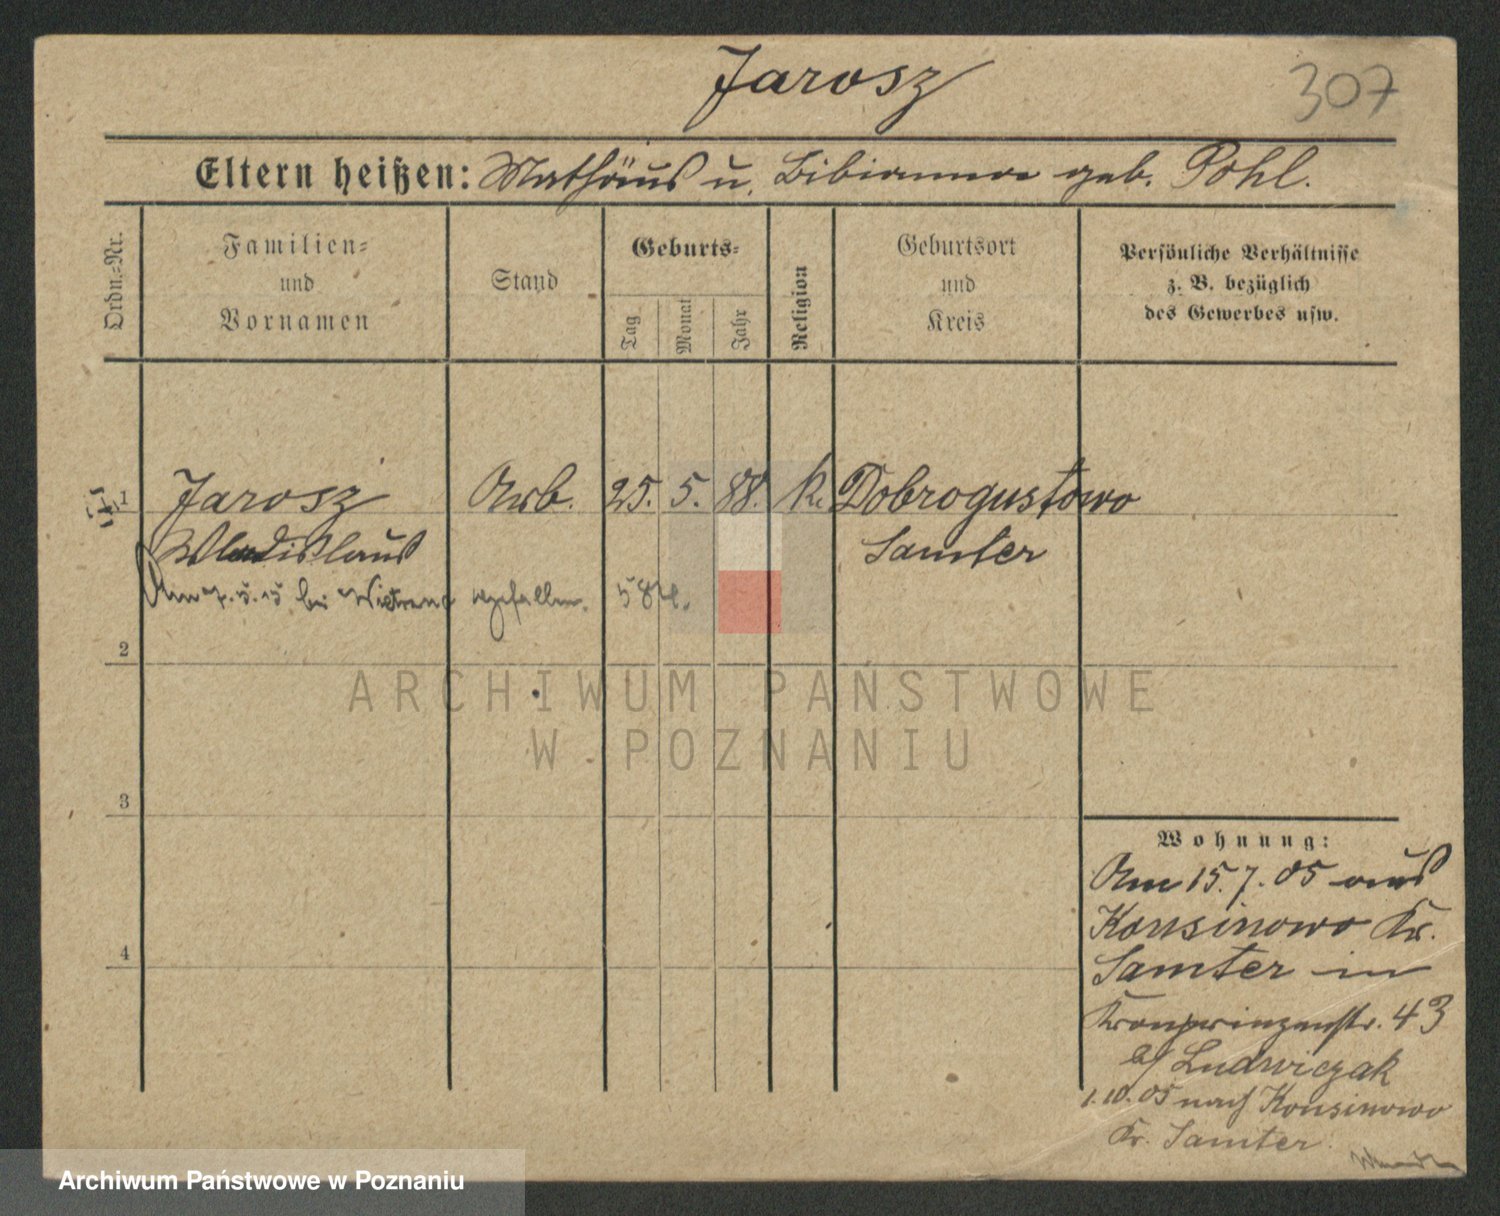 Jarosz
307
Eltern heißen: Mathäus u. Bibianna geb. Pohl.
Ordn.-Nr.
Familien- und Vornamen
Stand
Geburts-
Tag
Monat
Jahr
Religion
Geburtsort und Kreis
Persönliche Verhältnisse z. B. bezüglich des Gewerbes usw.
1 Jarosz Arb. 25. 5. 88. k. Dobrogustowo
Wladislaus Samter
Am 7.5.15 bei gefallen.
2
3
4
Wohnung:
Am 15.7.05 aus
Konsinowo Kr.
Samter in
Kronprinzenstr. 43
b/ Ludwiczak
1.10.05 nach Konsinowo
Kr. Samter
ARCHIWUM PAŃSTWOWE
W POZNANIU
Archiwum Państwowe w Poznaniu